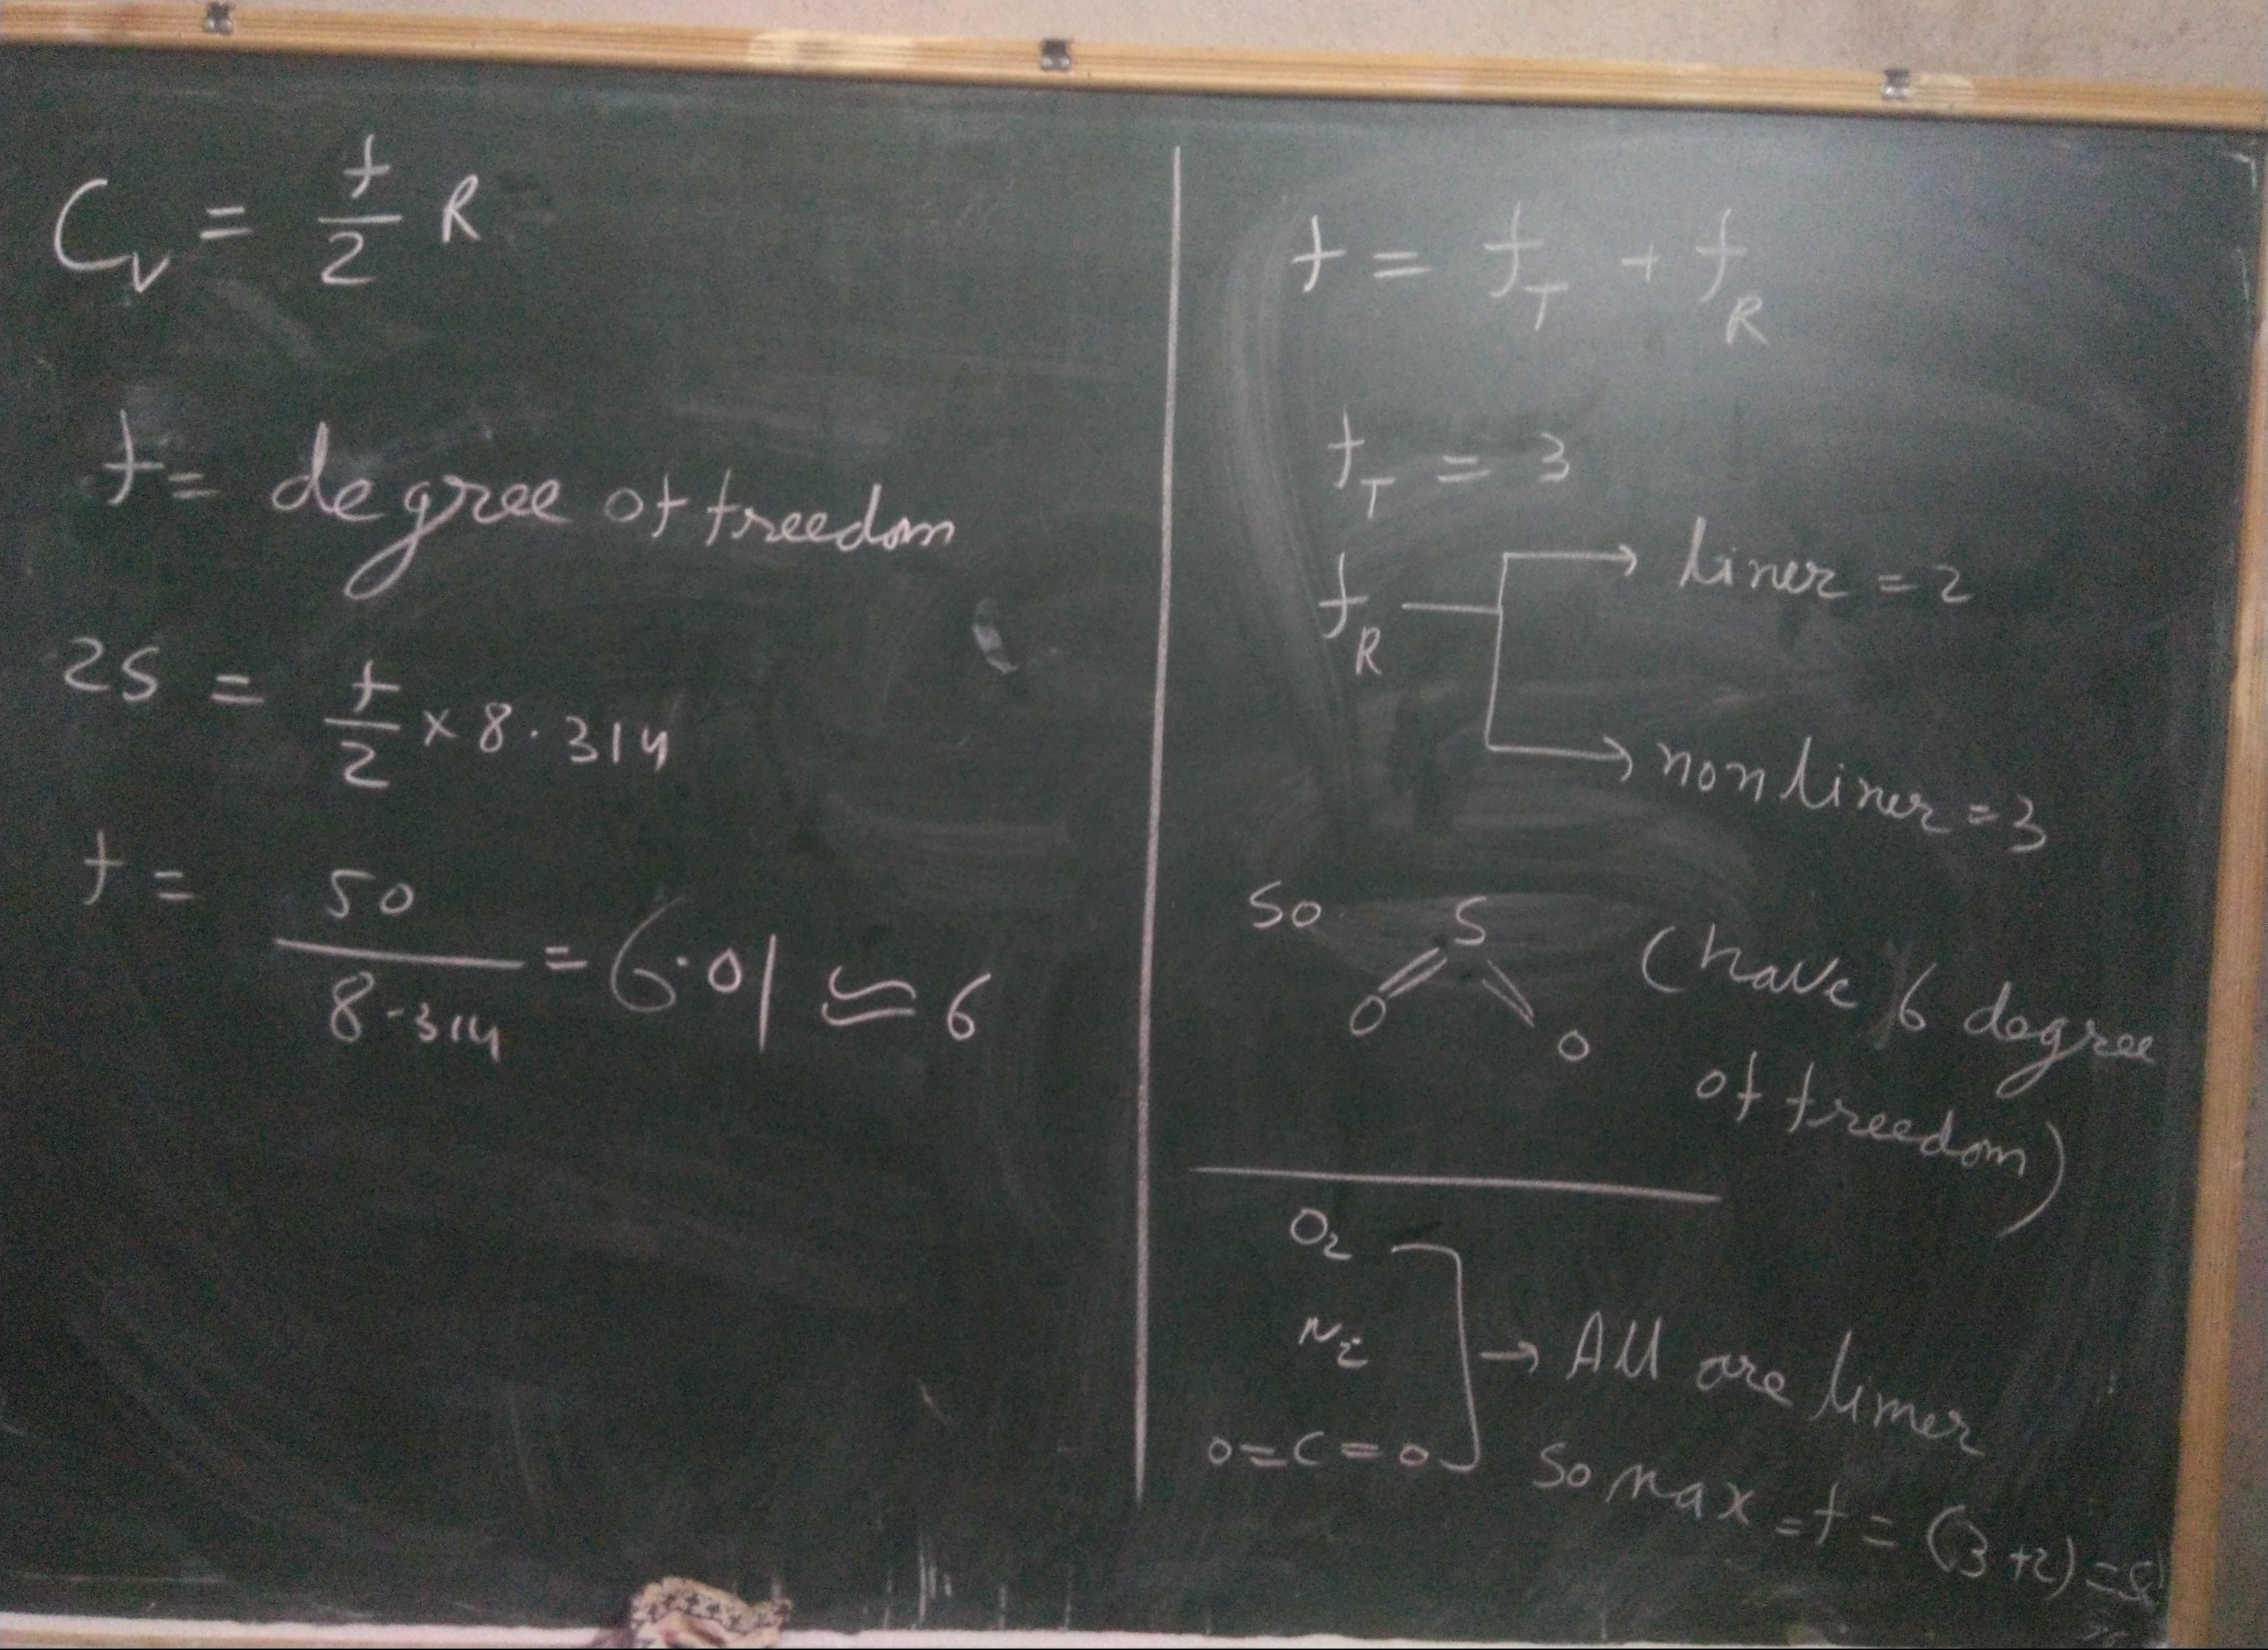 C_V = f/2 R
f = degree of freedom
25 = f/2 × 8.314
f = 50/8.314 = 6.01 ≃ 6
f = f_T + f_R
f_T = 3
f_R → liner = 2
→ non liner = 3
So S (have 6 degree
O O of freedom)
O2
N2 → All are liner
O=C=O So max = f = (3+2) = 5